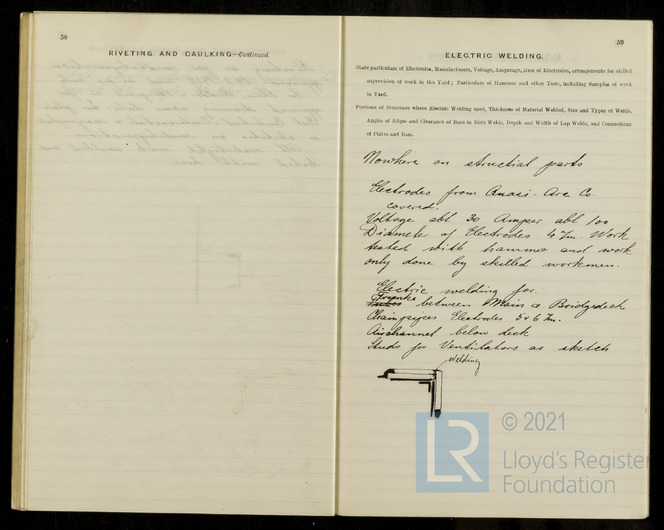 58
RIVETING AND CAULKING—Continued.
59
ELECTRIC WELDING.
State particulars of Electrodes, Manufacturers, Voltage, Amperage, sizes of Electrodes, arrangements for skilled
supervision of work in the Yard; Particulars of Hammer and other Tests, including Samples of work
in Yard.
Portions of Structure where Electric Welding used, Thickness of Material Welded, Size and Types of Welds,
Angles of Edges and Clearance of Bars in Butt Welds, Depth and Width of Lap Welds, and Connections
of Plates and Bars.
Nowhere on structial parts
Electrodes from Quasi-Arc Co.
covered.
Voltage abt 30 Amper abt 100
Diameter of Electrodes 4 7m. Work
tested with hammer and work
only done by skilled workmen.
Electric welding for
Trunks
between Main & Bridgedeck
Electrodes 5 & 6 7m.
Airchannel below deck
Studs for Ventilators as sketch
welding
LR
© 2021
Lloyd's Register
Foundation